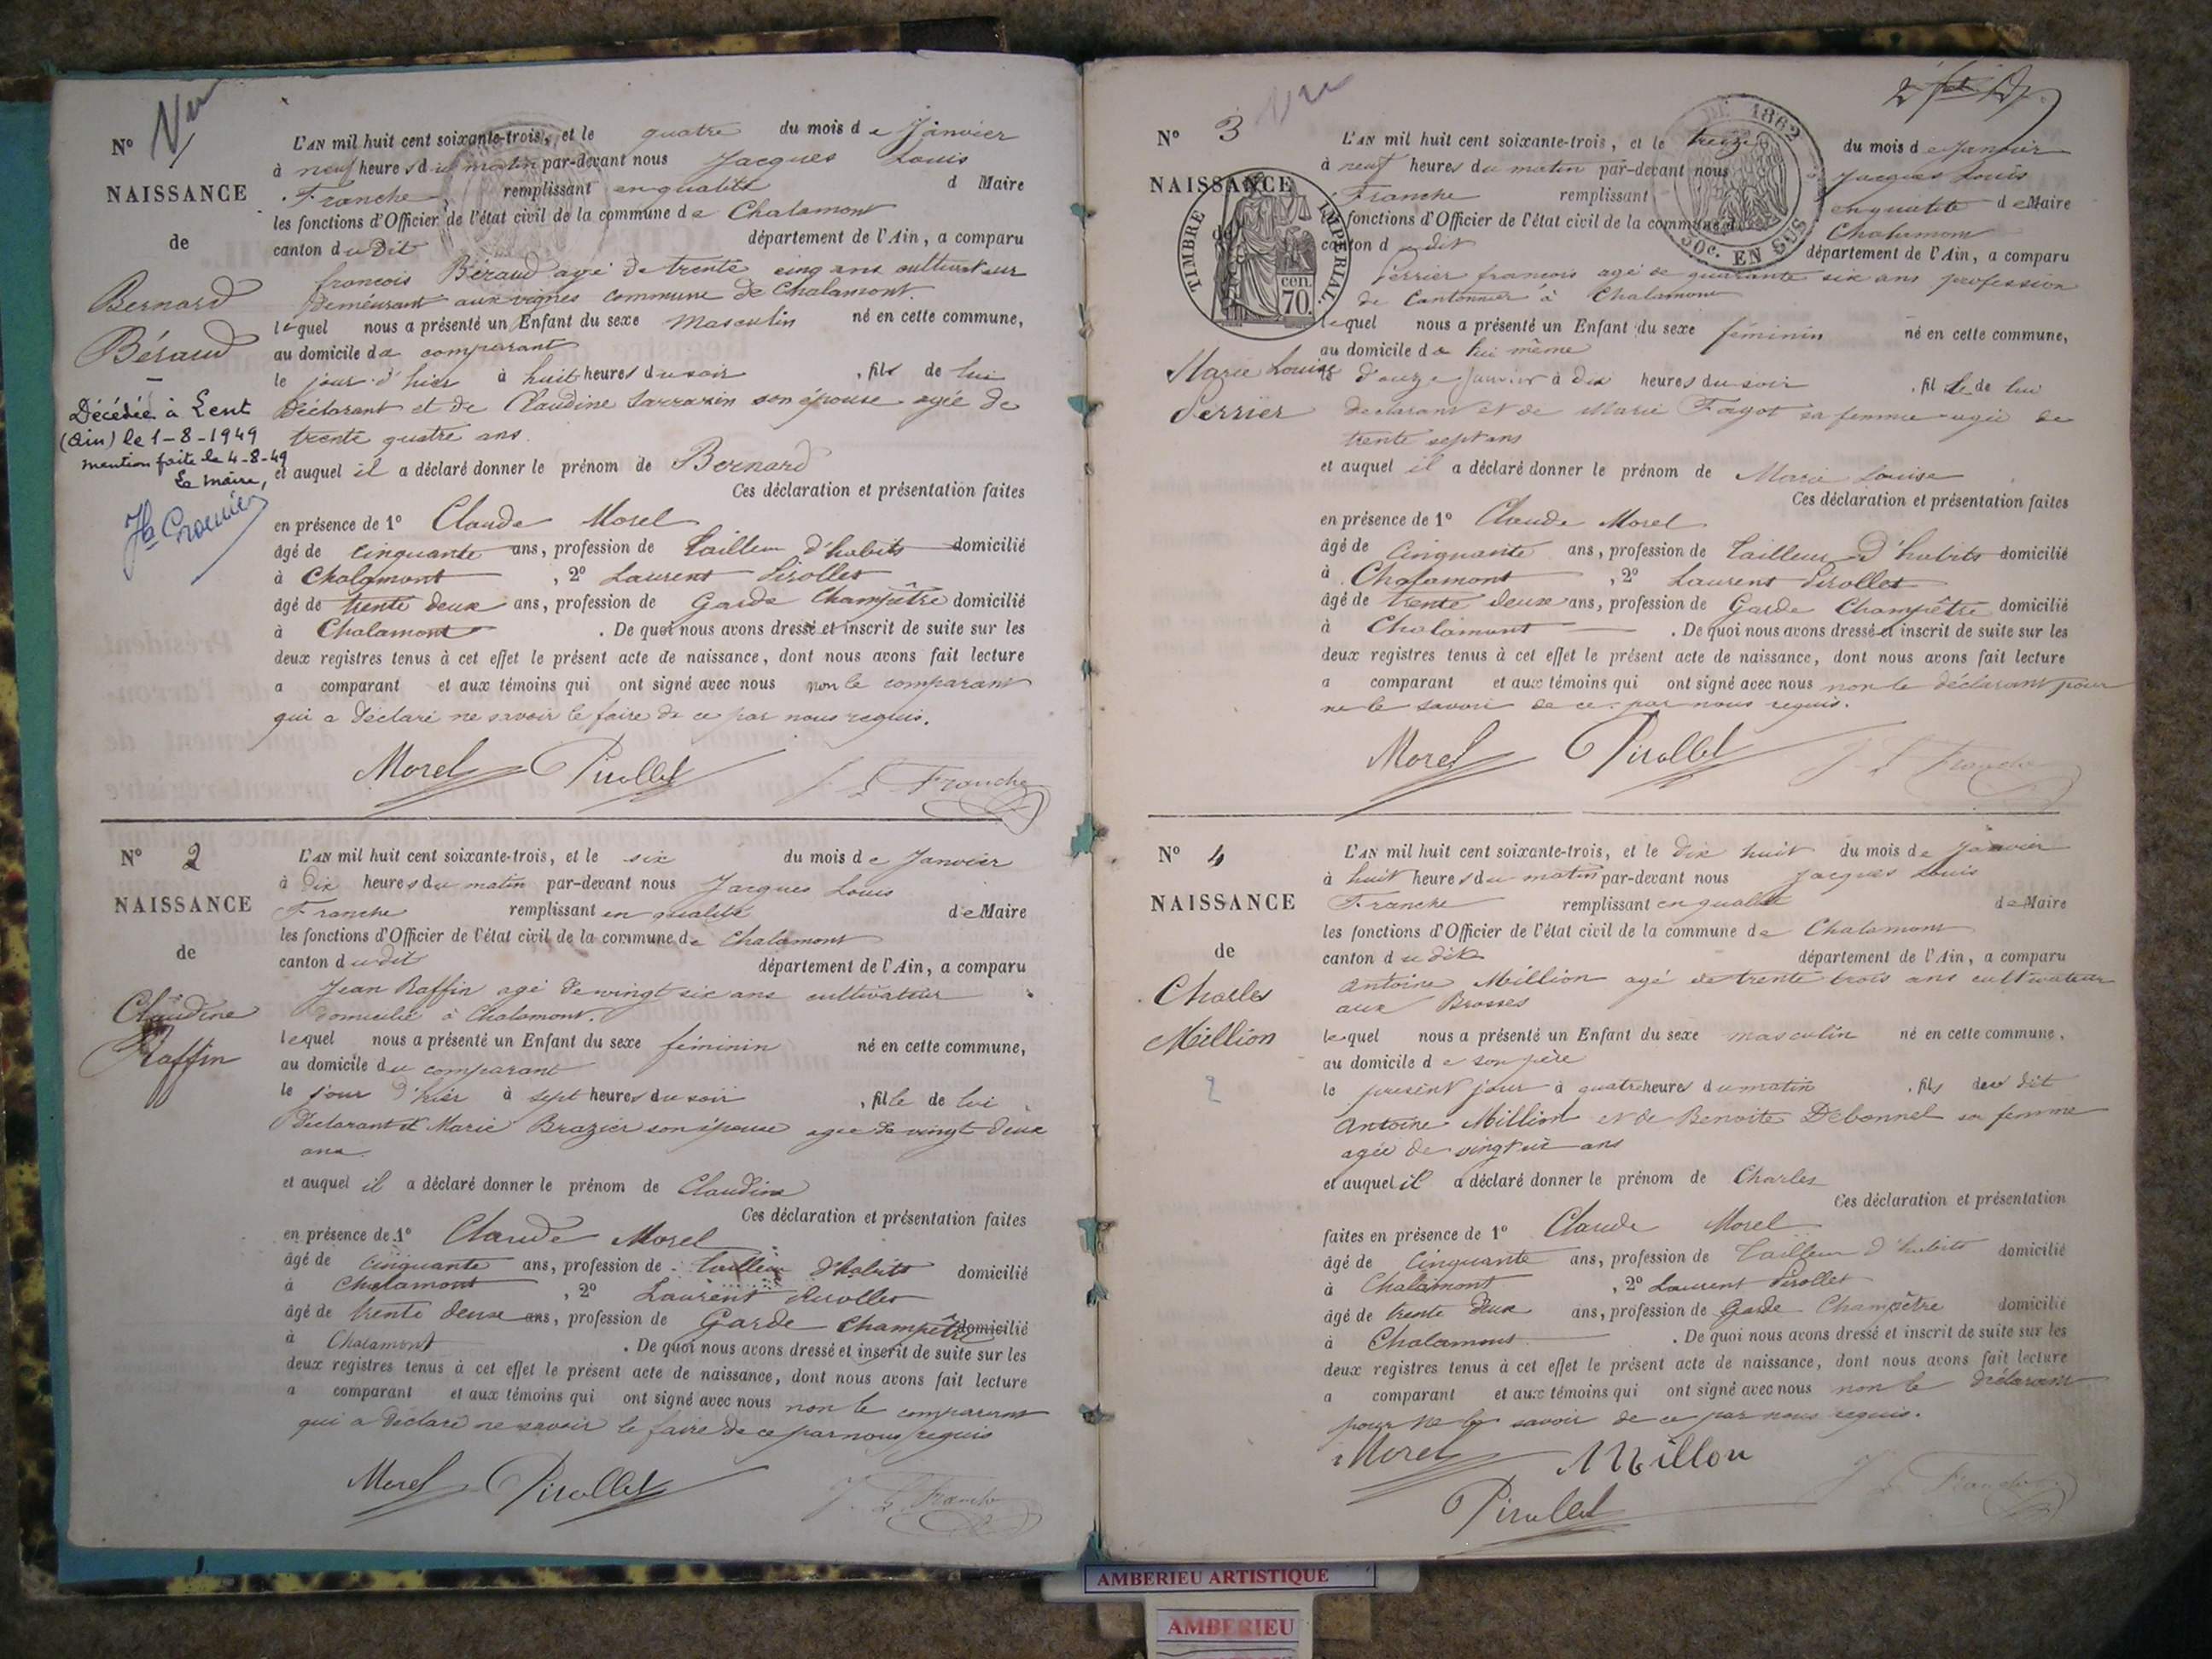 Nº 1
NAISSANCE
de
Bernard
Béraud
Décédée à Lent
(Ain) le 1-8-1949
mention faite le 4-8-49
Le Maire,
L'AN mil huit cent soixante-trois, et le quatre du mois de Janvier
à neuf heures du matin par-devant nous Jacques Louis
Franche remplissant en qualité d Maire
les fonctions d'Officier de l'état civil de la commune de Chalamont
canton dudit département de l'Ain, a comparu
francois Béraud agé de trente cinq ans cultivateur
demeurant aux vignes commune de Chalamont.
lequel nous a présenté un Enfant du sexe Masculin né en cette commune,
au domicile du comparant
le jour d'hier à huit heures du soir, fils de lui
déclarant et de Claudine Sarrazin son épouse agée de
trente quatre ans.
et auquel il a déclaré donner le prénom de Bernard
Ces déclaration et présentation faites
en présence de 1º Claude Morel
âgé de cinquante ans, profession de tailleur d'habits domicilié
à Chalamont, 2º Laurent Pirollet
âgé de trente deux ans, profession de Garde Champêtre domicilié
à Chalamont. De quoi nous avons dressé et inscrit de suite sur les
deux registres tenus à cet effet le présent acte de naissance, dont nous avons fait lecture
a comparant et aux témoins qui ont signé avec nous non le comparant
qui a déclaré ne savoir le faire de ce par nous requis.
Morel Pirollet J. L. Franche
Nº 2
NAISSANCE
de
Claudine
Raffin
L'AN mil huit cent soixante-trois, et le six du mois de Janvier
à dix heures du matin par-devant nous Jacques Louis
Franche remplissant en qualité de Maire
les fonctions d'Officier de l'état civil de la commune de Chalamont
canton dudit département de l'Ain, a comparu
Jean Raffin agé de vingt six ans cultivateur
domicilié à Chalamont.
lequel nous a présenté un Enfant du sexe féminin né en cette commune,
au domicile du comparant
le jour d'hier à sept heures du soir, fille de lui
déclarant et Marie Brazier son épouse agée de vingt deux
ans
et auquel il a déclaré donner le prénom de Claudine
Ces déclaration et présentation faites
en présence de 1º Claude Morel
âgé de cinquante ans, profession de tailleur d'habits domicilié
à Chalamont, 2º Laurent Pirollet
âgé de trente deux ans, profession de Garde Champêtre domicilié
à Chalamont. De quoi nous avons dressé et inscrit de suite sur les
deux registres tenus à cet effet le présent acte de naissance, dont nous avons fait lecture
a comparant et aux témoins qui ont signé avec nous non le comparant
qui a déclaré ne savoir le faire de ce par nous requis
Morel Pirollet J. L. Franche
Nº 3
NAISSANCE
de
Marie Louise
Perrier
TIMBRE IMPÉRIAL
cen. 70.
1862
50c. EN SUS
L'AN mil huit cent soixante-trois, et le treize du mois de Janvier
à neuf heures du matin par-devant nous Jacques Louis
Franche remplissant en qualité de Maire
les fonctions d'Officier de l'état civil de la commune de Chalamont
canton dudit département de l'Ain, a comparu
Perrier francois agé de quarante six ans profession
de Cantonnier à Chalamont
lequel nous a présenté un Enfant du sexe féminin né en cette commune,
au domicile de lui même
le douze Janvier à dix heures du soir, fille de lui
déclarant et de Marie Fagot sa femme agée de
trente sept ans
et auquel il a déclaré donner le prénom de Marie Louise
Ces déclaration et présentation faites
en présence de 1º Claude Morel
âgé de Cinquante ans, profession de Tailleur d'habits domicilié
à Chalamont, 2º Laurent Pirollet
âgé de trente deux ans, profession de Garde Champêtre domicilié
à Chalamont. De quoi nous avons dressé et inscrit de suite sur les
deux registres tenus à cet effet le présent acte de naissance, dont nous avons fait lecture
a comparant et aux témoins qui ont signé avec nous non le déclarant pour
ne le savoir de ce par nous requis.
Morel Pirollet J. L. Franche
Nº 4
NAISSANCE
de
Charles
Million
2
L'AN mil huit cent soixante-trois, et le dix huit du mois de Janvier
à huit heures du matin par-devant nous Jacques Louis
Franche remplissant en qualité de Maire
les fonctions d'Officier de l'état civil de la commune de Chalamont
canton dudit département de l'Ain, a comparu
Antoine Million agé de trente trois ans cultivateur
aux Brosses
lequel nous a présenté un Enfant du sexe masculin né en cette commune,
au domicile de son père
le présent jour à quatre heures du matin, fils du dit
Antoine Million et de Benoite Debonnel sa femme
agée de vingt ans
et auquel il a déclaré donner le prénom de Charles
Ces déclaration et présentation
faites en présence de 1º Claude Morel
âgé de Cinquante ans, profession de Tailleur d'habits domicilié
à Chalamont, 2º Laurent Pirollet
âgé de trente deux ans, profession de Garde Champêtre domicilié
à Chalamont. De quoi nous avons dressé et inscrit de suite sur les
deux registres tenus à cet effet le présent acte de naissance, dont nous avons fait lecture
a comparant et aux témoins qui ont signé avec nous non le déclarant
pour ne le savoir de ce par nous requis.
Morel Millon J. L. Franche
Pirollet
AMBERIEU ARTISTIQUE
AMBERIEU